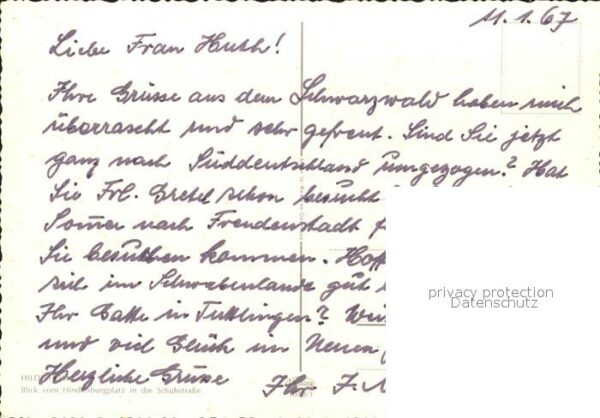 11.1.67
Liebe Frau Huth!
Ihre Grüsse aus dem Schwarzwald haben mich
überrascht und sehr gefreut. Sind Sie jetzt
ganz nach Süddeutschland umgezogen? Hat
Sie Frl. Gretel schon besucht
Sommer nach Freudenstadt
Sie besuchen kommen.
sich im Schwabenlande gut
Ihr Gatte in Tuttlingen?
und viel Glück im Neuen
Herzliche Grüsse Ihr J.
Blick vom Hindenburgplatz in die Schuhstraße
privacy protection
Datenschutz